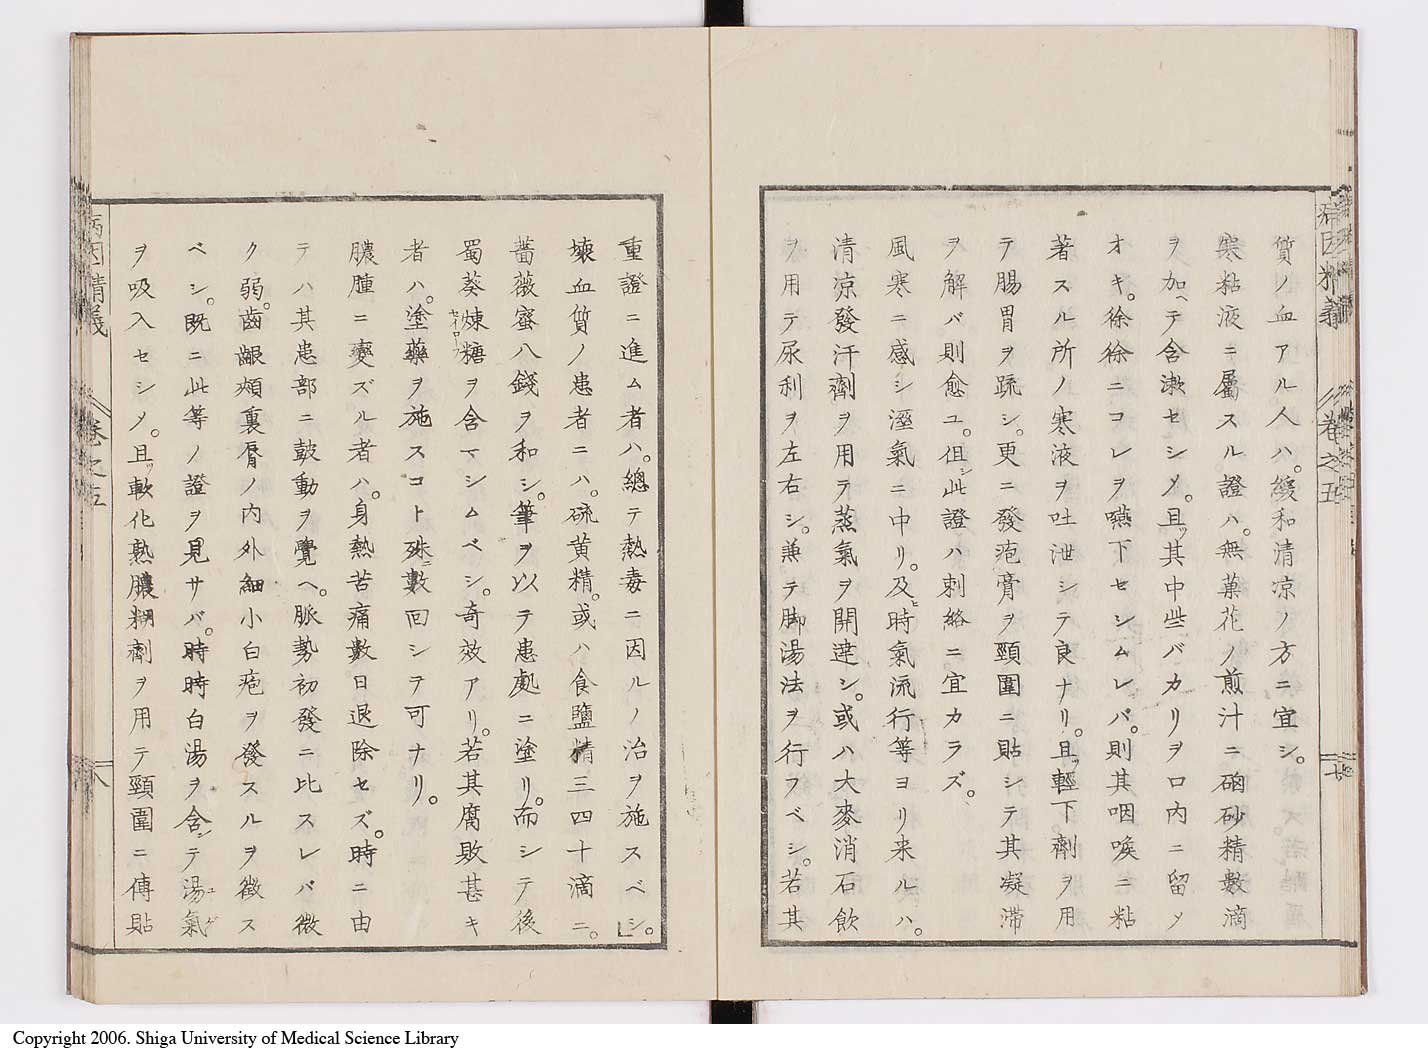 質ノ血アル人ハ。緩和清凉ノ方ニ宜シ。
寒粘液ニ屬スル證ハ。無菓花ノ煎汁ニ硇砂精數滴
ヲ加ヘテ含漱セシメ。且ツ其中些バカリヲ口内ニ留メ
オキ。徐徐ニコレヲ嚥下セシムレバ。則其咽喉ニ粘
著スル所ノ寒液ヲ吐泄シテ良ナリ。且ツ輕下劑ヲ用
テ腸胃ヲ疏シ。更ニ發疱膏ヲ頸圍ニ貼シテ其凝滞
ヲ解バ則愈ユ。伹シ此證ハ刺絡ニ宜カラズ。
風寒ニ感シ溼氣ニ中リ。及ヒ時氣流行等ヨリ来ルハ。
清凉發汗劑ヲ用テ蒸氣ヲ開達シ。或ハ大麥消石飲
ヲ用テ尿利ヲ左右シ。兼テ脚湯法ヲ行フベシ。若其
病因精義 卷之五
重證ニ進ム者ハ。總テ熱毒ニ因ルノ治ヲ施スベシ。」
壊血質ノ患者ニハ。硫黄精。或ハ食鹽精三四十滴ニ。
薔薇蜜八錢ヲ和シ。筆ヲ以テ患處ニ塗リ。而シテ後
蜀葵煉糖セイロープヲ含マシムベシ。奇效アリ。若其腐敗甚キ
者ハ。塗藥ヲ施スコト殊ニ數回シテ可ナリ。
膿腫ニ變ズル者ハ。身熱苦痛數日退除セズ。時ニ由
テハ其患部ニ皷動ヲ覺ヘ。脈勢初發ニ比スレバ微
ク弱。齒齦頰裏脣ノ内外細小白疱ヲ發スルヲ徴ス
ベシ。既ニ此等ノ證ヲ見サバ。時時白湯ヲ含シテ湯氣ユゲ
ヲ吸入セシメ。且ツ軟化熟膿糊劑ヲ用テ頸圍ニ傅貼
病因精義 卷之五 八
Copyright 2006. Shiga University of Medical Science Library